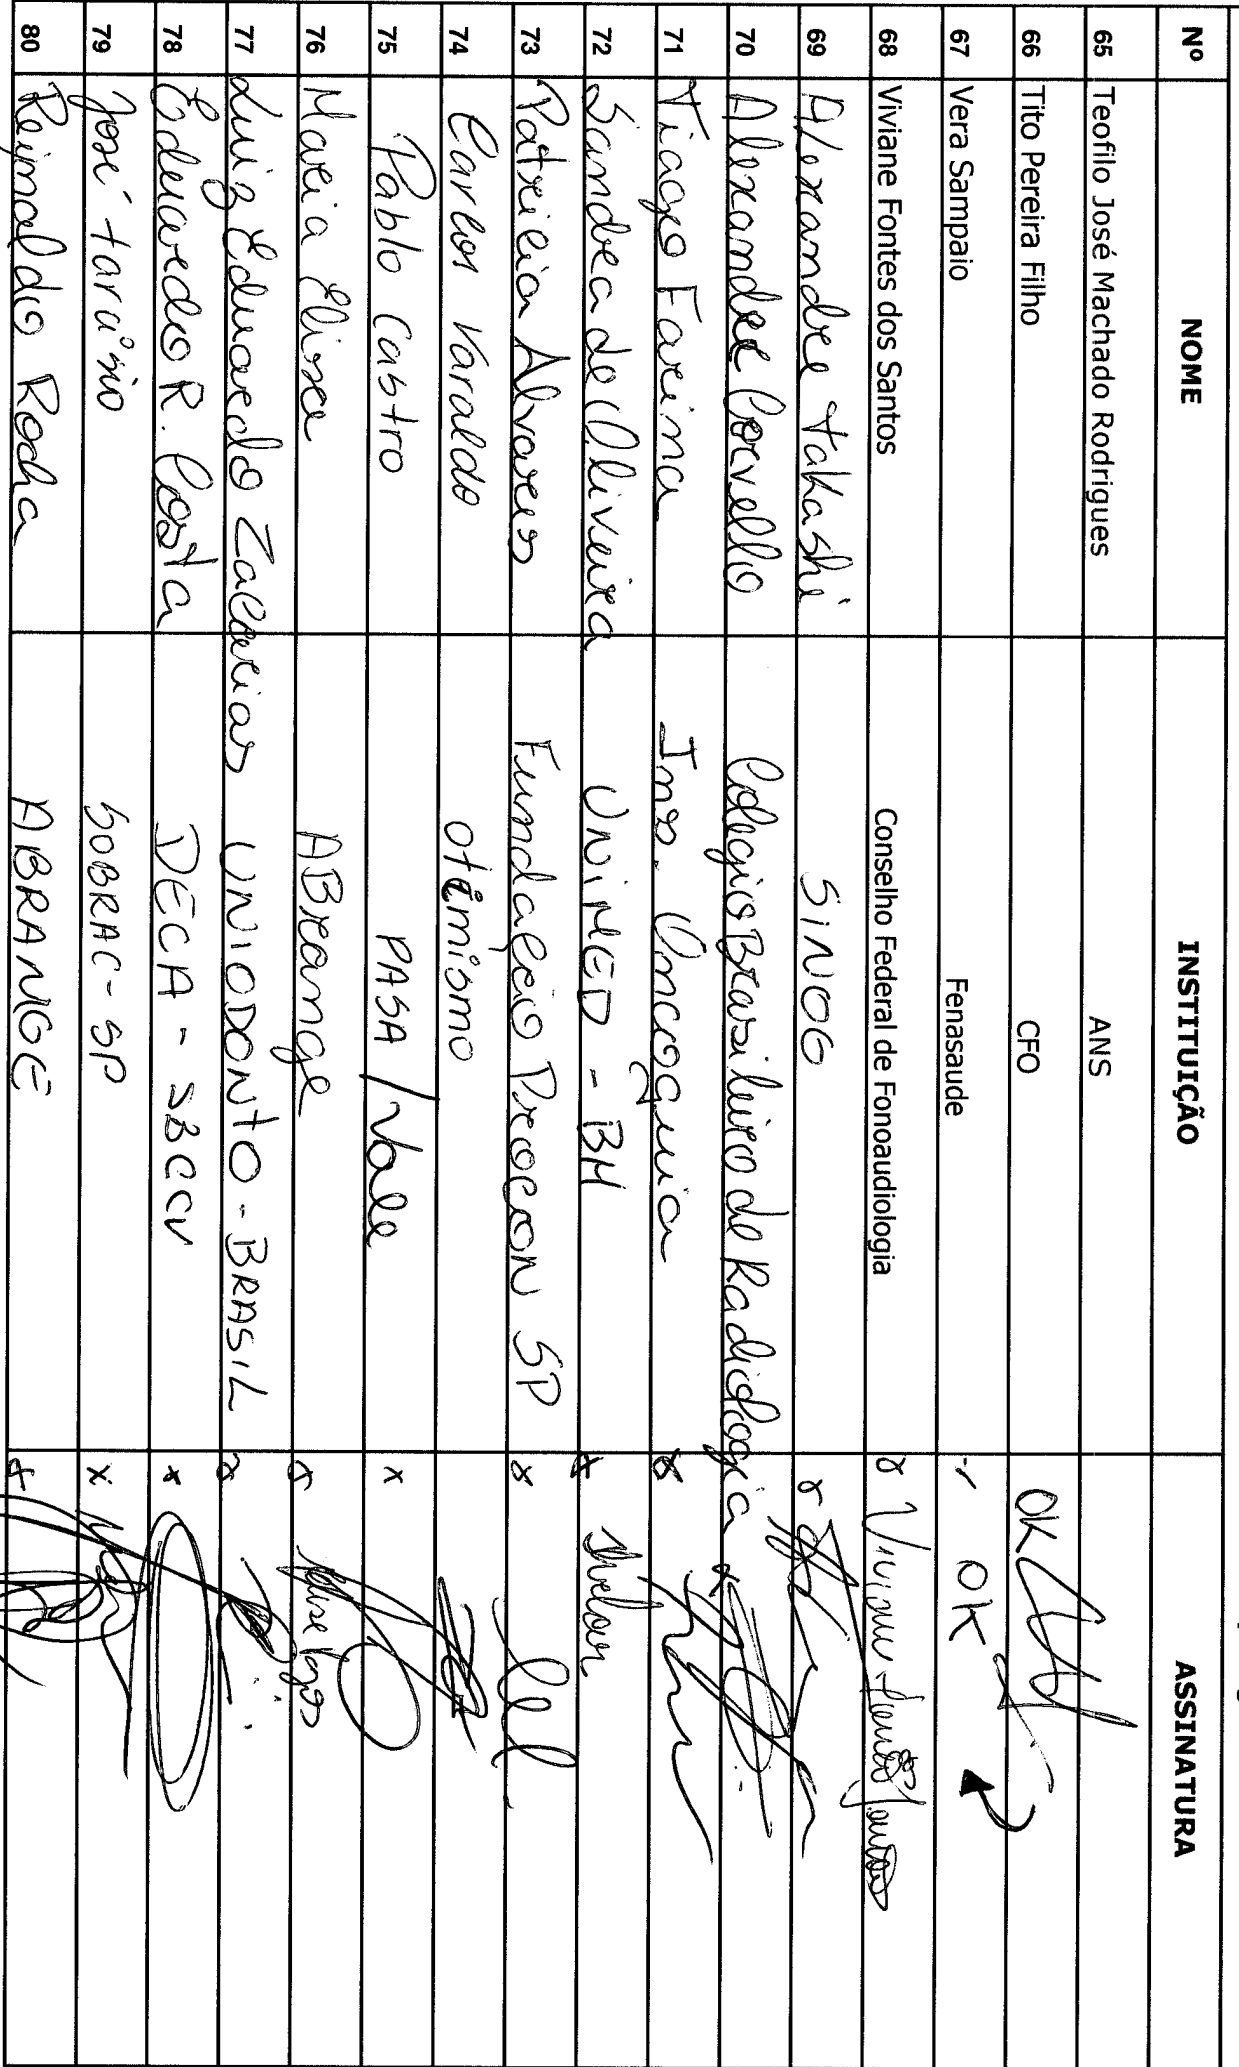 Nº NOME INSTITUIÇÃO ASSINATURA
65 Teofilo José Machado Rodrigues ANS
66 Tito Pereira Filho CFO OK
67 Vera Sampaio Fenasaude OK
68 Viviane Fontes dos Santos Conselho Federal de Fonoaudiologia Viviane Fontes
69 Alexandre Takashi SINOG
70 Alexandre Corvello Colegio Brasileiro de Radiologia
71 Tiago Farina Ins. Oncoguia
72 Sandra de Oliveira UNIMED - BH
73 Patricia Alvares Fundação Procon SP
74 Carlos Varaldo otimismo
75 Pablo Castro PASA / Vale
76 Maria Elisa ABrange
77 Luiz Eduardo Zacarias UNIODONTO - BRASIL
78 Eduardo R. Costa DECA - SBCCV
79 José Tarcísio SOBRAC - SP
80 Reinaldo Rocha ABRANGE